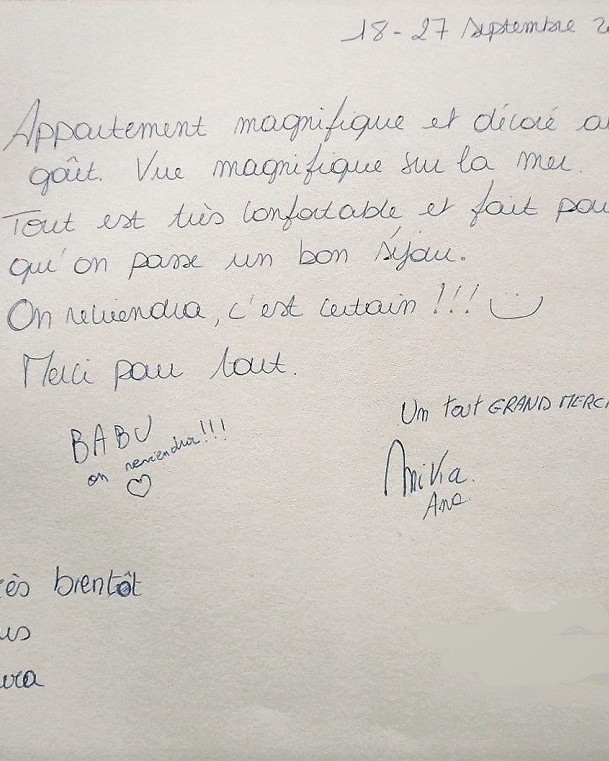 18-27 septembre 2
Appartement magnifique et décoré a
goût. Vue magnifique sur la mer.
Tout est très confortable et fait pou
qu'on passe un bon séjour.
On reviendra, c'est certain !!!
Merci pour tout.
Un tout GRAND MERCI
BABU
on reviendra!!!
Ana
ès bientôt
us
ura